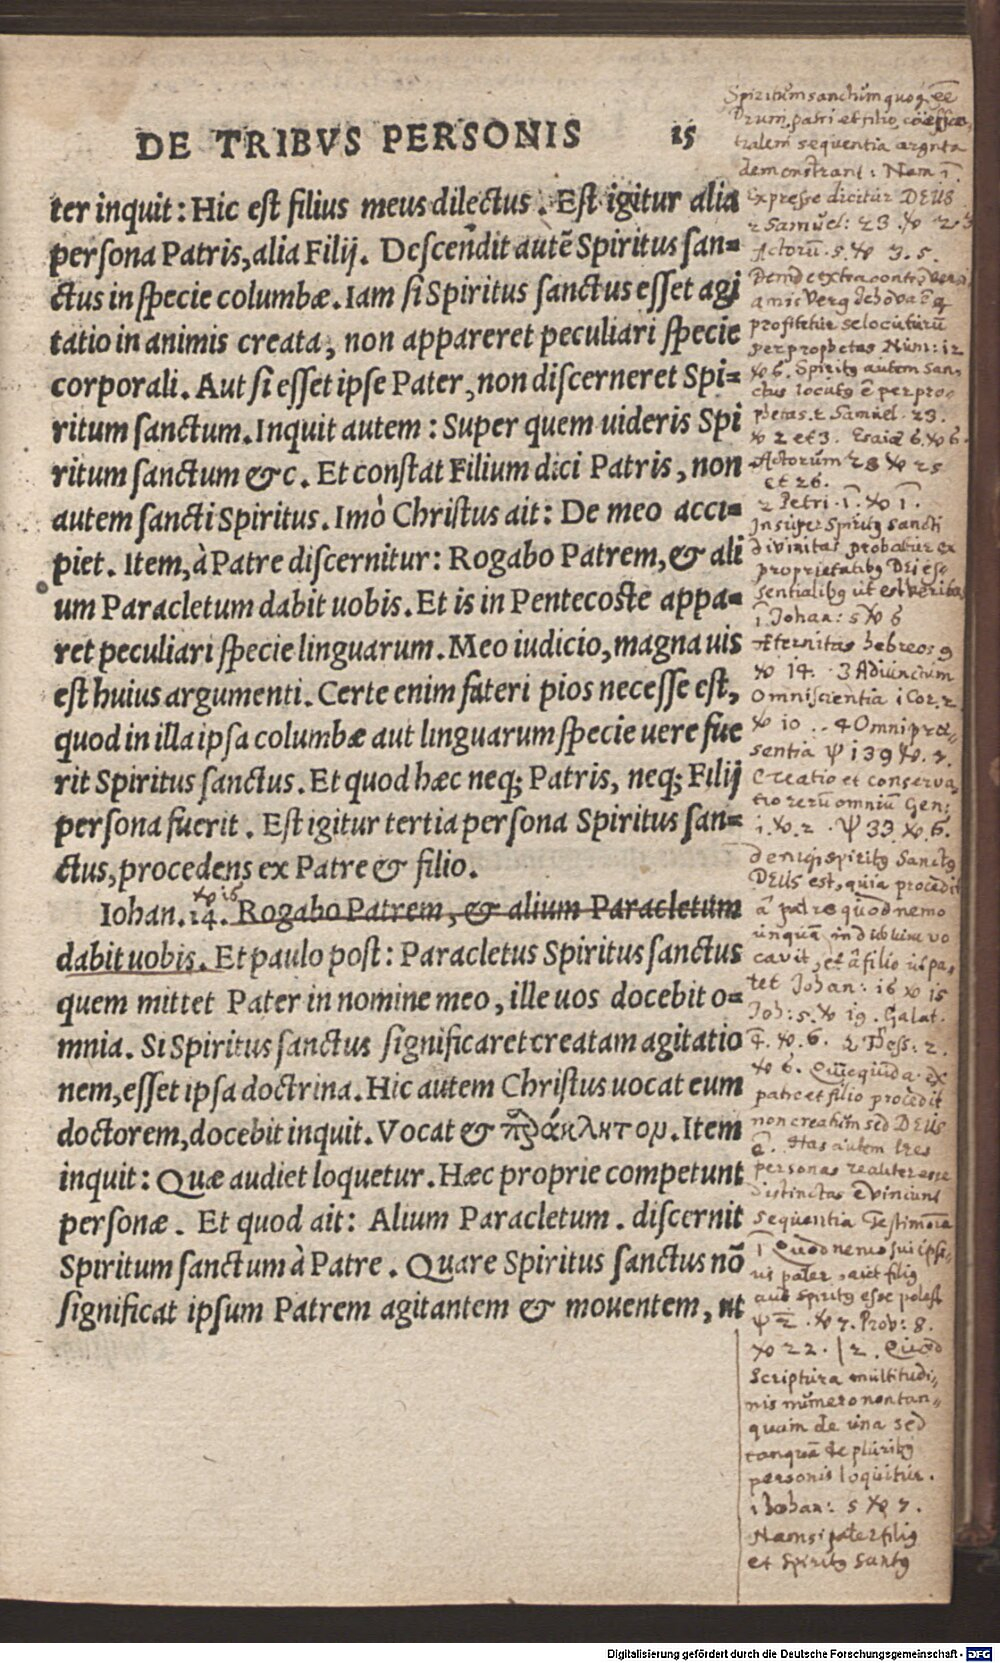 DE TRIBVS PERSONIS 15
ter inquit: Hic est filius meus dilectus. Est igitur alia
persona Patris, alia Filij. Descendit autē Spiritus san=
ctus in specie columbæ. Iam si Spiritus sanctus esset agi
tatio in animis creata, non appareret peculiari specie
corporali. Aut si esset ipse Pater, non discerneret Spi=
ritum sanctum. Inquit autem: Super quem uideris Spi
ritum sanctum &c. Et constat Filium dici Patris, non
autem sancti Spiritus. Imò Christus ait: De meo acci=
piet. Item, à Patre discernitur: Rogabo Patrem, & ali
um Paracletum dabit uobis. Et is in Pentecoste appa=
ret peculiari specie linguarum. Meo iudicio, magna uis
est huius argumenti. Certe enim fateri pios necesse est,
quod in illa ipsa columbæ aut linguarum specie uere fue
rit Spiritus sanctus. Et quod hæc neq; Patris, neq; Filij
persona fuerit. Est igitur tertia persona Spiritus san=
ctus, procedens ex Patre & filio.
Iohan. 14. Rogabo Patrem, & alium Paracletum
dabit uobis. Et paulo post: Paracletus Spiritus sanctus
quem mittet Pater in nomine meo, ille uos docebit o=
mnia. Si Spiritus sanctus significaret creatam agitatio
nem, esset ipsa doctrina. Hic autem Christus uocat eum
doctorem, docebit inquit. Vocat & παράκλητον. Item
inquit: Quæ audiet loquetur. Hæc proprie competunt
personæ. Et quod ait: Alium Paracletum. discernit
Spiritum sanctum à Patre. Quare Spiritus sanctus nō
significat ipsum Patrem agitantem & mouentem, ut
Spiritum sanctum quoq
patri et filio
sequentia
demonstrant: Nam 1.
Expresse dicitur DEUS
2 Samuel: 23
Actorū. 5. 3. 5.
profitetur se locuturū
per prophetas Num: 12
6. Spiritq autem San,
ctus locutq ē per pro
phetas. 2 Samuel. 23.
2 et 3. Esaiæ 6. 6.
Actorum 28 25
et 26.
2 Petri. 1. 1.
Insuper Spiritq sancti
divinitas probatur ex
proprietatibq DEI es
sentialibq ut est veritas
1 Johan: 5 6
Æternitas hebreos 9
14. 3
Omniscientia 1 Cor. 2
10 .. 4 Omniprae,,
sentia ψ 139 7.
Creatio et conserva,
tio rerū omniū Gen:
1. 2. ψ 33 6.
deniq spiritq Sanctq
DEUS est, quia procedit
ā patre quod nemo
unquā in dubium vo
cavit, et ā filio ut pa,
tet Johan: 16 15
Joh: 5. 19. Galat.
4. 6. 2 Tess: 2.
6. Quicquid a. ex
patre et filio procedit
non creatum sed DEUS
ē. Has autem tres
personas realiter esse
distinctas evincunt
sequentia Testimonia
1 Quod nemo sui ipsi,
us pater, aut filiq
aut Spiritq esse potest
ψ 2. 7. Prov: 8.
22. | 2. Quod
Scriptura multitudi,,
nis numero non tan,,
quam de una sed
tanquā de pluribq
personis loquitur.
1 Johan: 5 7.
Nam si pater filiq
et Spiritq Santq
Digitalisierung gefördert durch die Deutsche Forschungsgemeinschaft - DFG